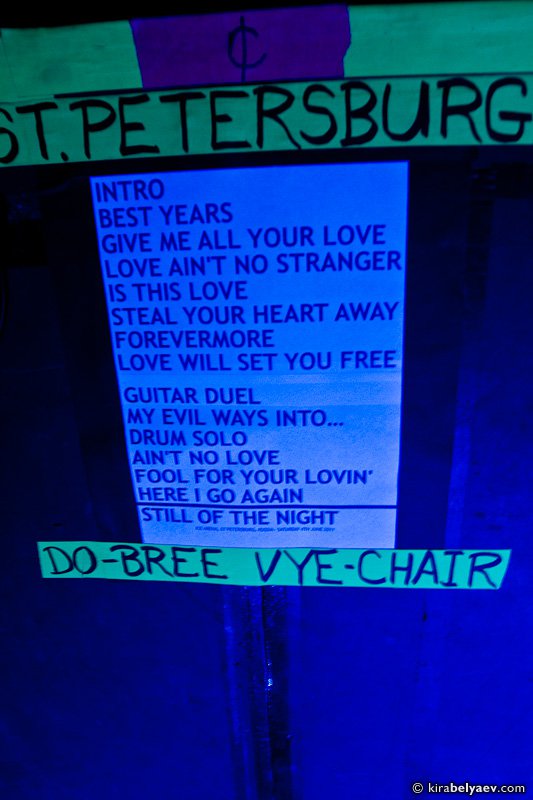 ¢
ST. PETERSBURG
INTRO
BEST YEARS
GIVE ME ALL YOUR LOVE
LOVE AIN'T NO STRANGER
IS THIS LOVE
STEAL YOUR HEART AWAY
FOREVERMORE
LOVE WILL SET YOU FREE
GUITAR DUEL
MY EVIL WAYS INTO...
DRUM SOLO
AIN'T NO LOVE
FOOL FOR YOUR LOVIN'
HERE I GO AGAIN
STILL OF THE NIGHT
ICE ARENA, ST PETERSBURG, RUSSIA - SATURDAY 4TH JUNE 2011
DO-BREE VYE-CHAIR
© kirabelyaev.com